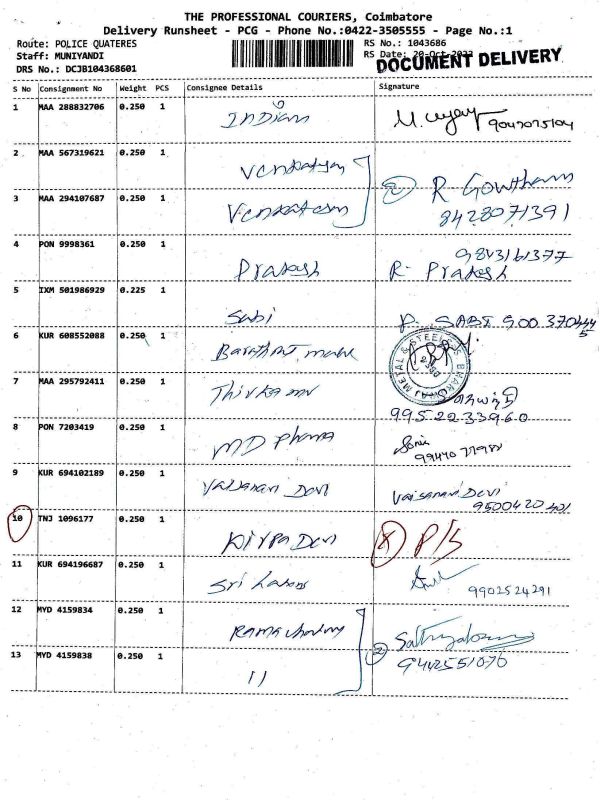 THE PROFESSIONAL COURIERS, Coimbatore
Delivery Runsheet - PCG - Phone No.:0422-3505555 - Page No.:1
Route: POLICE QUATERES
RS No.: 1043686
Staff: MUNIYANDI
RS Date: 20-Oct-2022
DRS No.: DCJB104368601
DOCUMENT DELIVERY
S No Consignment No Weight PCS Consignee Details Signature
1 MAA 288832706 0.250 1
Indian
9047075104
2 MAA 567319621 0.250 1
2 R Gowtham
3 MAA 294107687 0.250 1
8428071391
4 PON 9998361 0.250 1
9843161377
Prakash R. Prakash
5 IXM 501986929 0.225 1
Sabi P. SABI
6 KUR 608552088 0.250 1
METAL & STEEL
7 MAA 295792411 0.250 1
9952233960
8 PON 7203419 0.250 1
MD Pharma
9 KUR 694102189 0.250 1
Vaisanavi Devi
9500420401
10 TNJ 1096177 0.250 1
Devi P/S
11 KUR 694196687 0.250 1
Sri 9902524291
12 MYD 4159834 0.250 1
Rama 2
13 MYD 4159838 0.250 1
11 9442551070